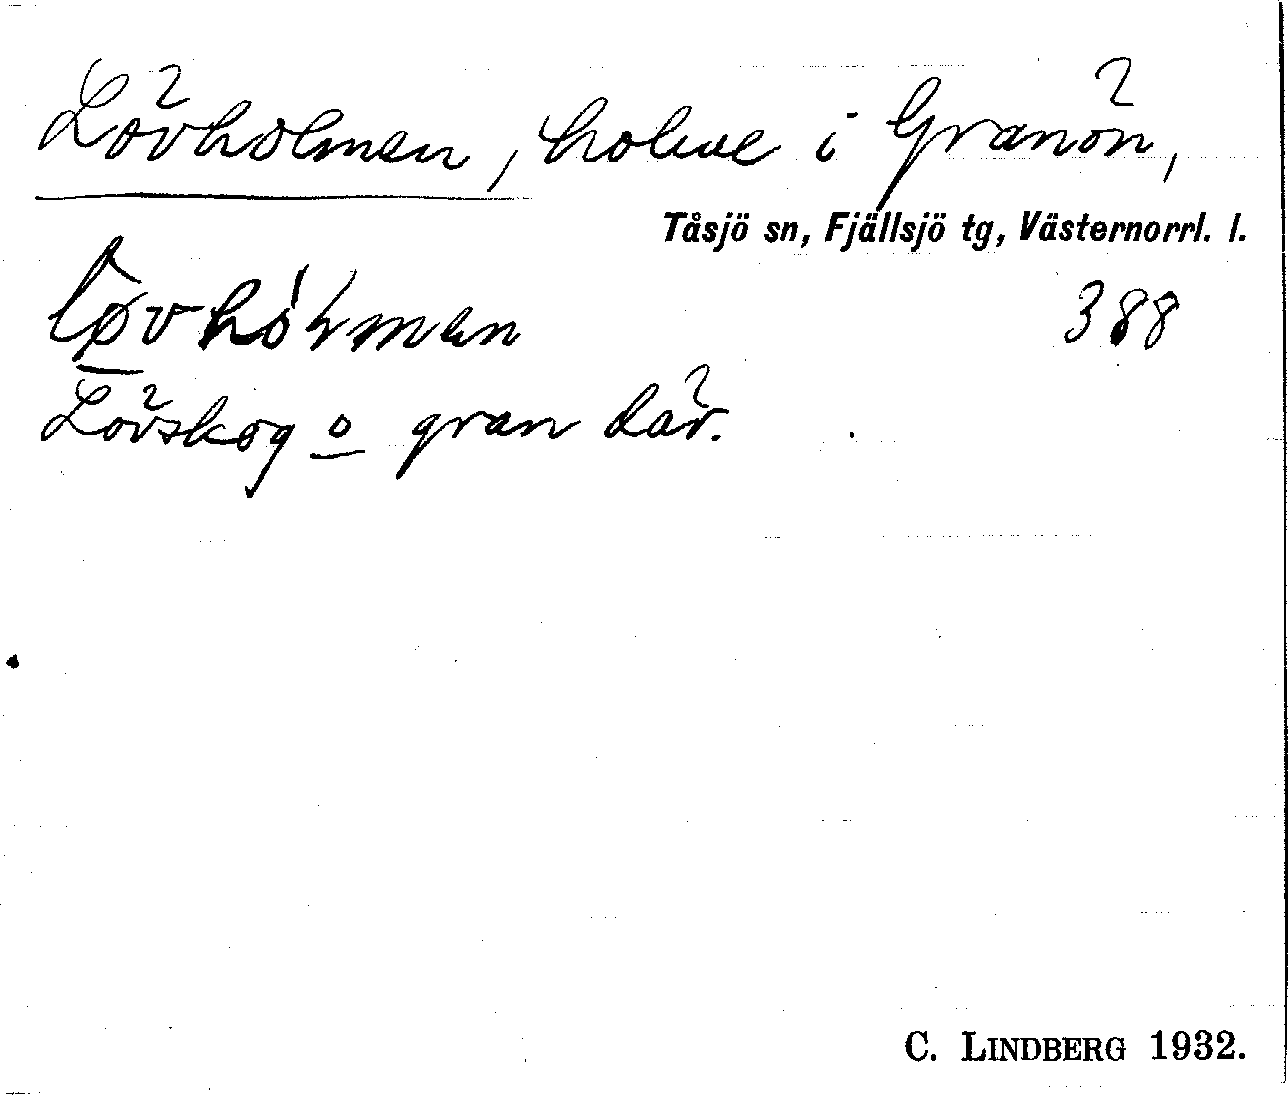 Lövholmen, holme i Granön,
Tåsjö sn, Fjällsjö tg, Västernorrl. l.
388
Lövskog o gran där.
C. LINDBERG 1932.